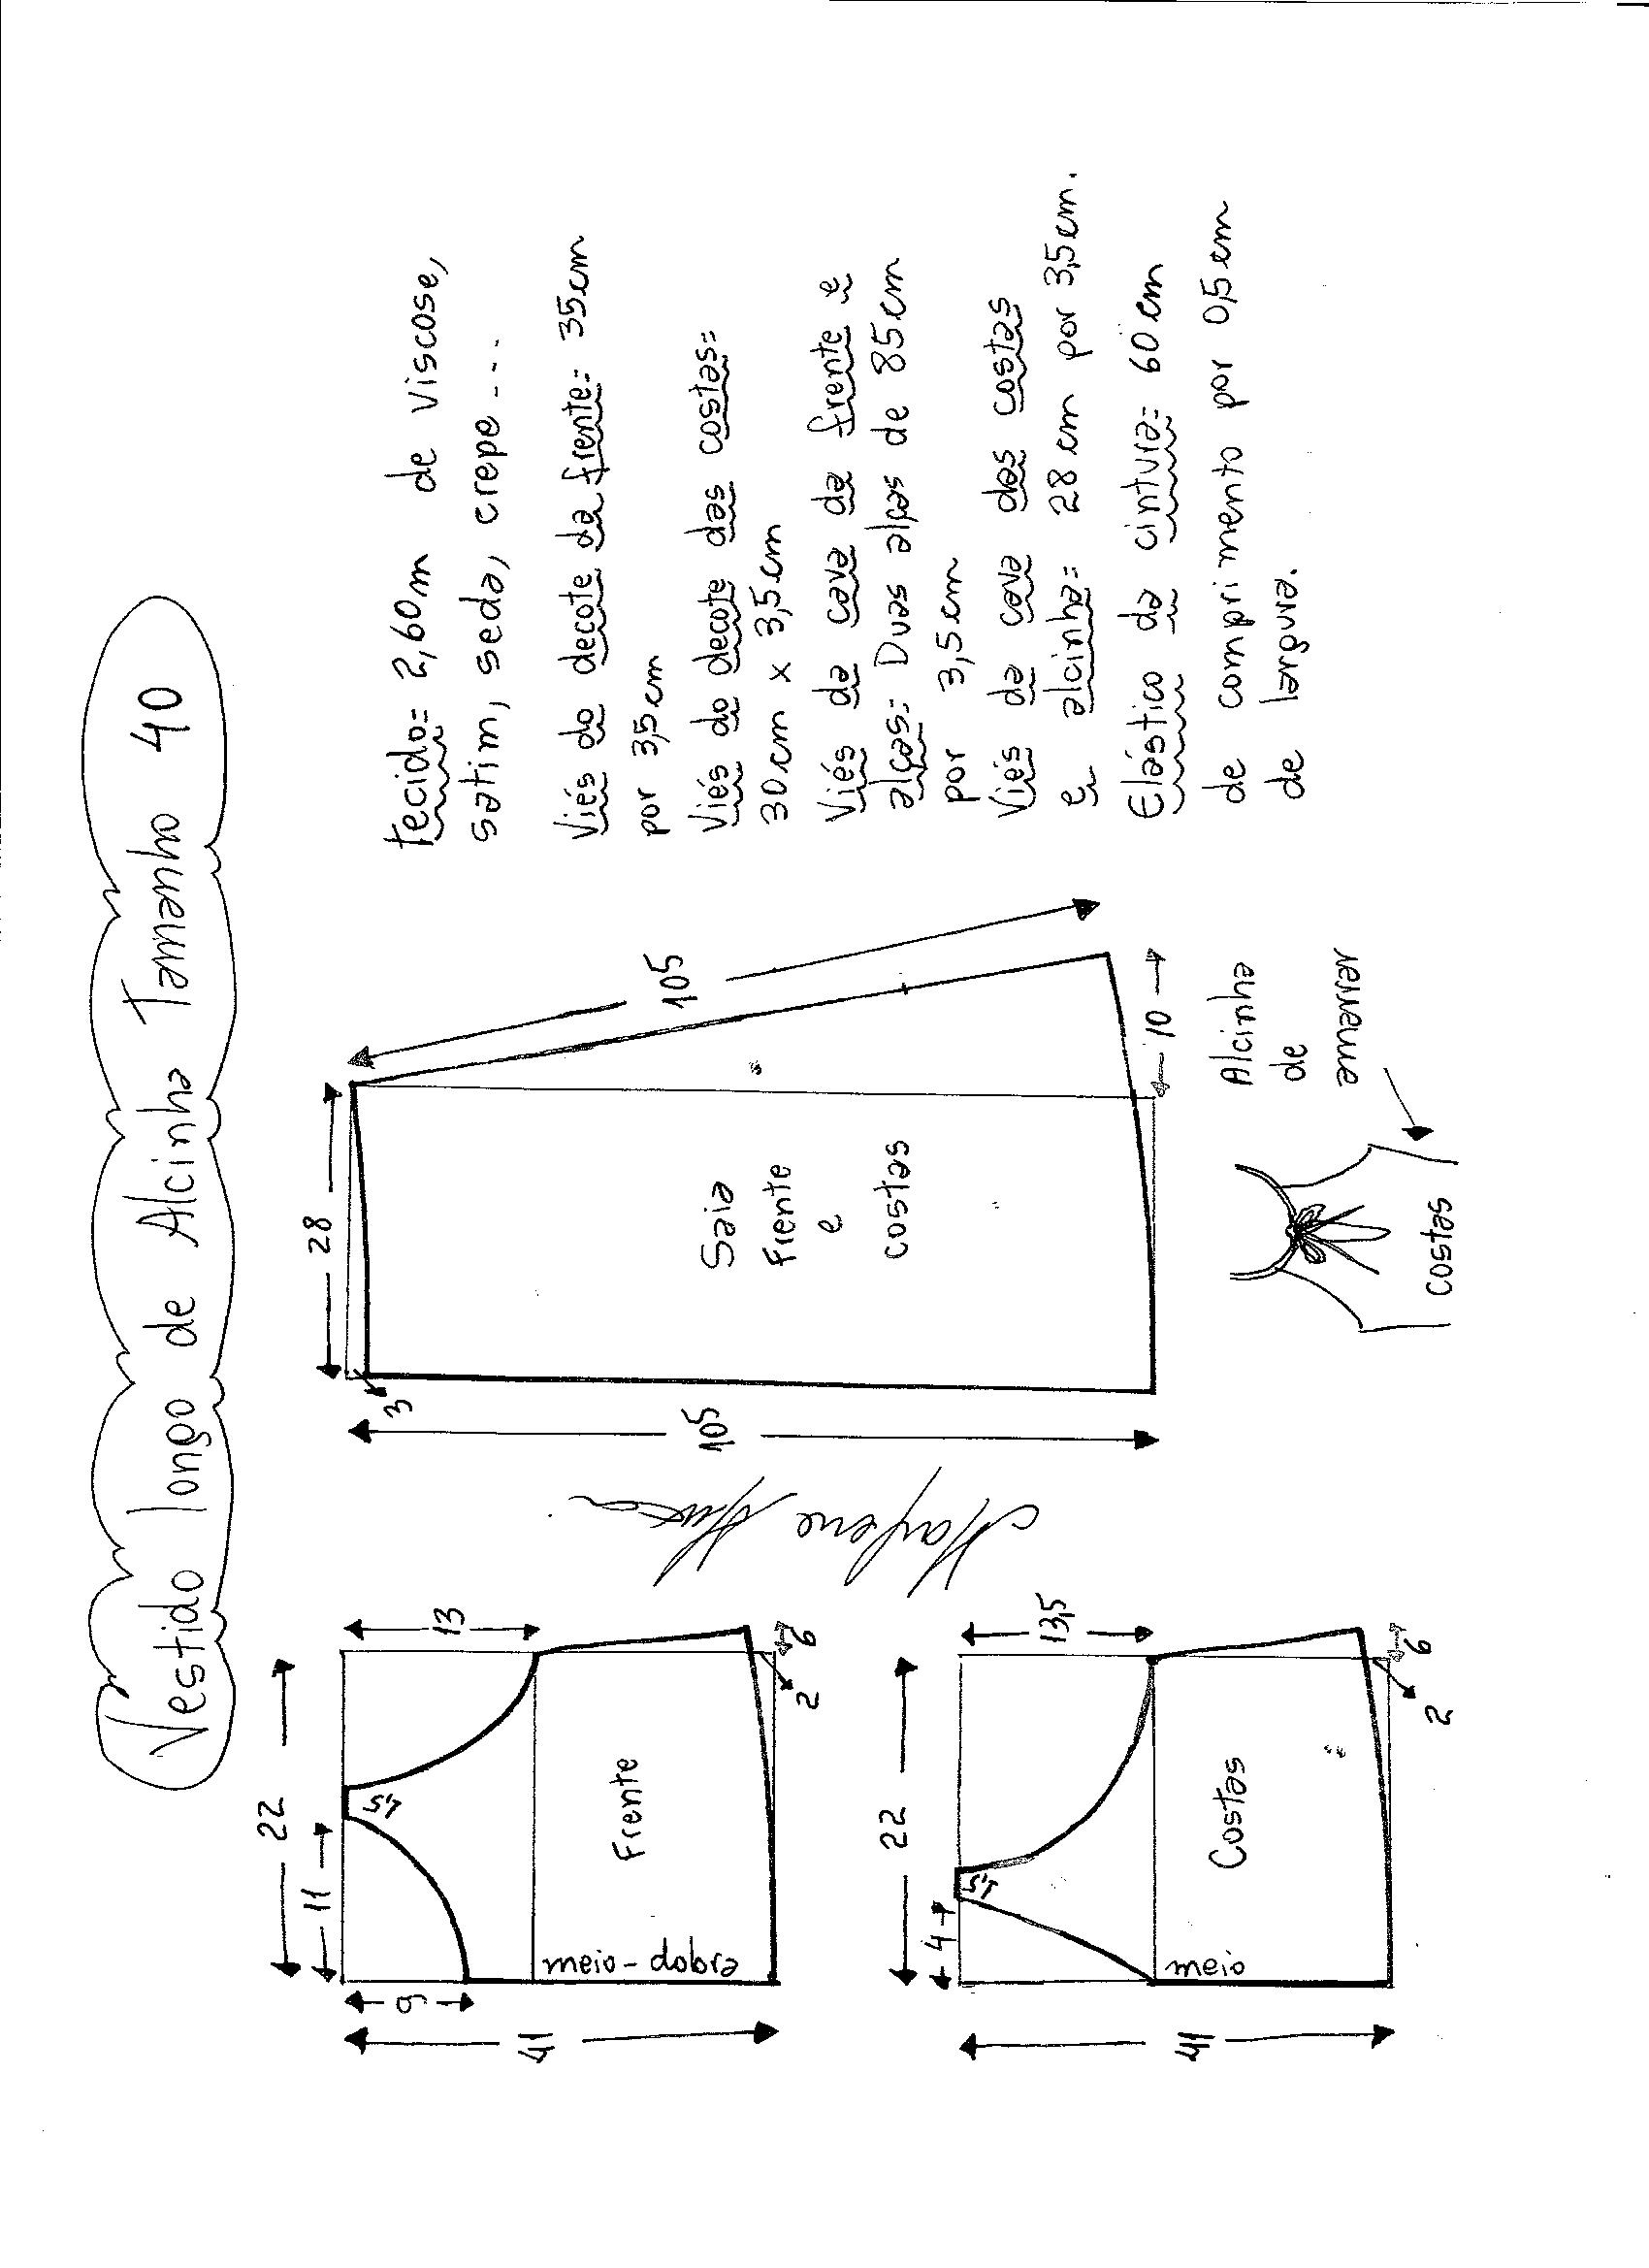 Vestido longo de Alcinha Tamanho 40
22
11
9
41
1,5
13
Frente
meio - dobra
2
6
22
4
41
1,5
13,5
Costas
meio
2
6
Marlene
28
3
105
105
10
Saia
Frente
e
costas
Alcinha
de
amarrar
costas
tecido= 2,60m de viscose,
satim, seda, crepe ---
Viés do decote da frente= 35cm
por 3,5cm
Viés do decote das costas=
30cm x 3,5cm
Viés da cava da frente e
alças= Duas alças de 85cm
por 3,5cm
Viés da cava das costas
e alcinha= 28 cm por 3,5cm.
Elástico da cintura= 60cm
de comprimento por 0,5cm
de largura.